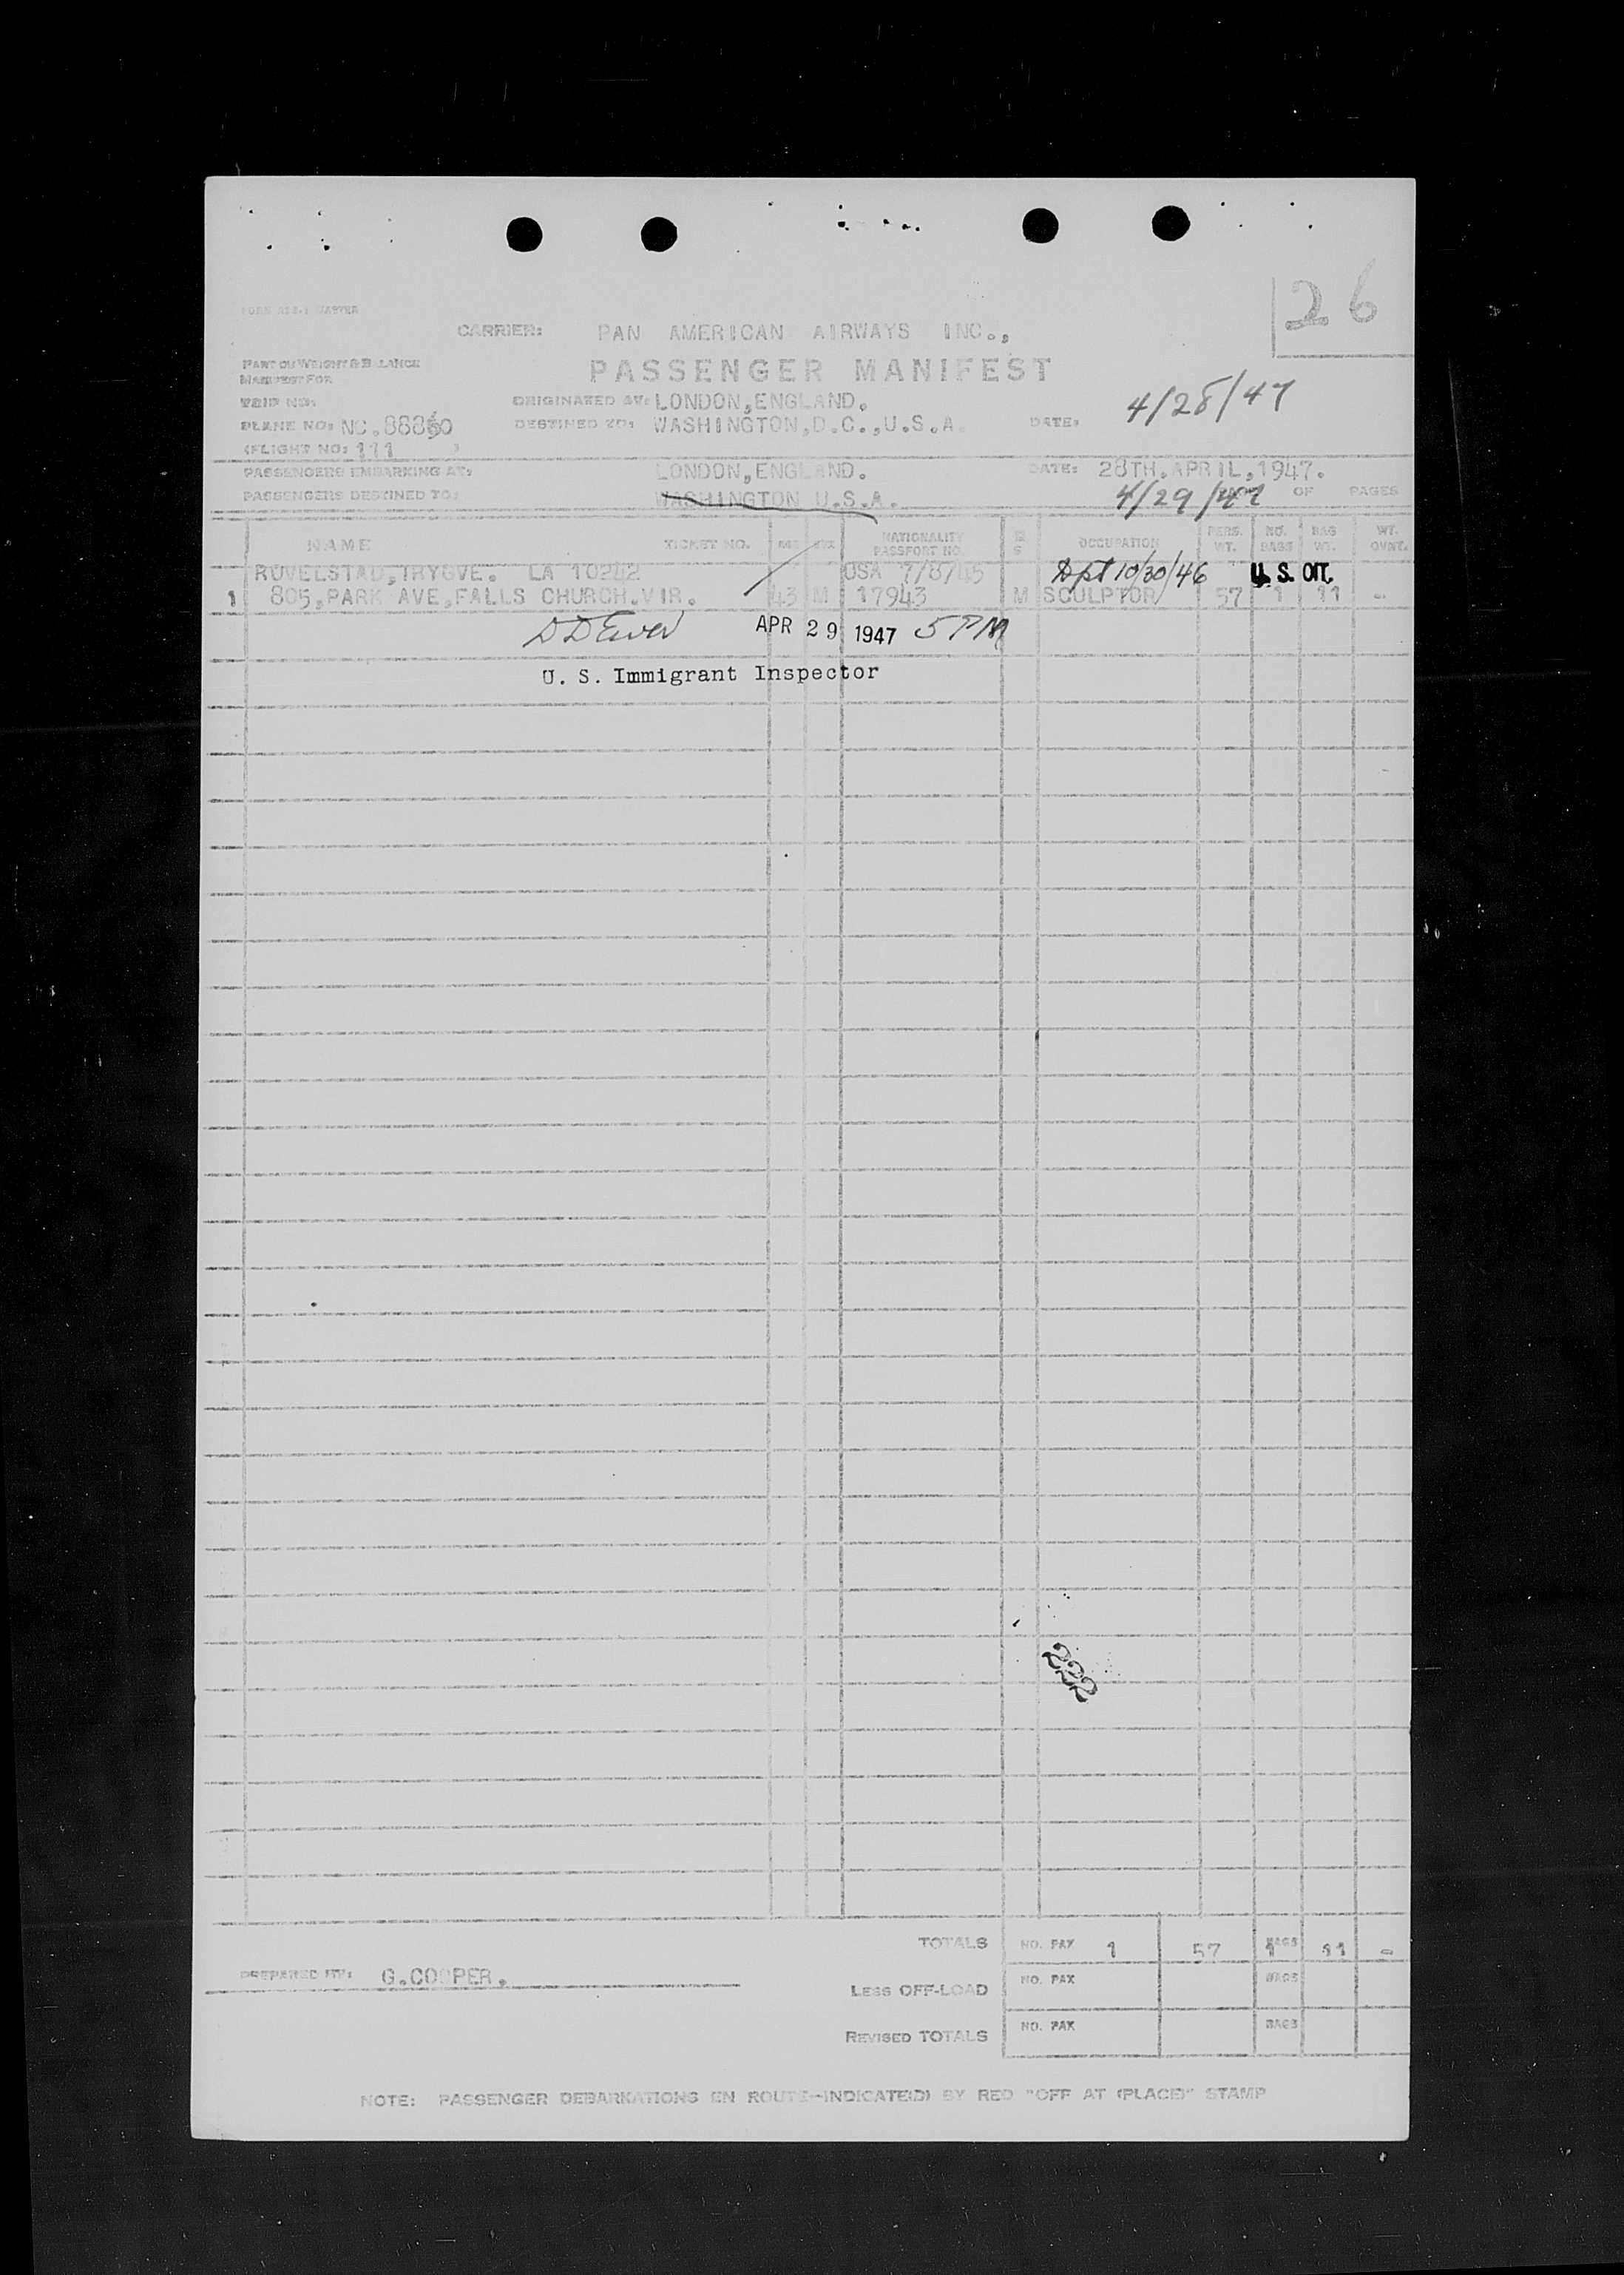 26
FORM
CARRIER: PAN AMERICAN AIRWAYS INC.,
PART OF WEIGHT & BALANCE
MANIFEST FOR
PASSENGER MANIFEST
TRIP NO:
ORIGINATED AT: LONDON,ENGLAND.
4/28/47
PLANE NO: NC.88860
DESTINED TO: WASHINGTON,D.C.,U.S.A.
DATE:
(FLIGHT NO: 111 )
PASSENGERS EMBARKING AT: LONDON,ENGLAND. DATE: 28TH.APRIL,1947.
PASSENGERS DESTINED TO: WASHINGTON U.S.A. 4/29/47 OF PAGES
NAME TICKET NO. AGE SEX NATIONALITY PASSPORT NO M S OCCUPATION PERS. WT. NO. BAGS BAG WT. WT. OVWT.
RUVELSTAD,TRYGVE. LA 10242 USA 7/8/45 Dpt 10/30/46 U. S. CIT.
1 805,PARK AVE,FALLS CHURCH.VIR. 43 M 17943 M SCULPTOR 57 1 11 -
APR 29 1947 5 PM
U. S. Immigrant Inspector
222
TOTALS NO. PAX 1 57 BAGS 1 11 -
PREPARED BY: G.COOPER.
LESS OFF-LOAD NO. PAX BAGS
REVISED TOTALS NO. PAX BAGS
NOTE: PASSENGER DEBARKATIONS EN ROUTE-INDICATE(D) BY RED "OFF AT (PLACE)" STAMP